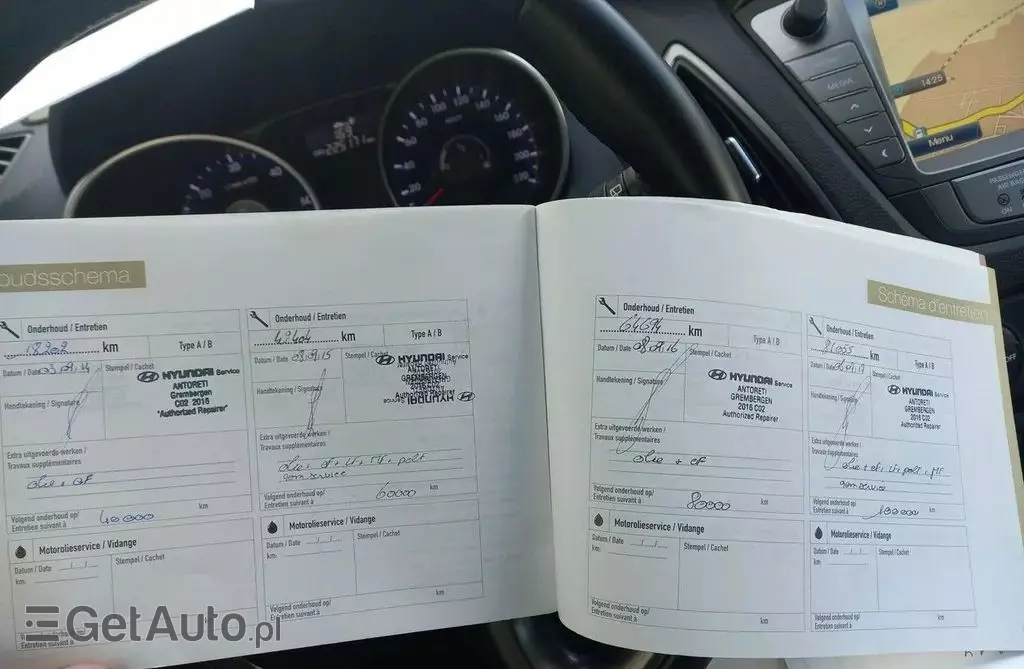 14:25
MEDIA
Menu
PASSENGER
AIR BAG
ON
OFF
20
40
60
80
100
120
140
160
180
200
220
225171 km
oudsschema
Onderhoud / Entretien
18202 km
Type A / B
Datum / Date
Stempel / Cachet
HYUNDAI Service
ANTORETI
Grembergen
C02 2016
"Authorized Repairer"
Handtekening / Signature
Extra uitgevoerde werken /
Travaux supplémentaires
olie + of
Volgend onderhoud op/
Entretien suivant à
40000
km
Motorolieservice / Vidange
Datum / Date
Stempel / Cachet
km:
Volgend onderhoud op/
Entretien suivant à
km
Onderhoud / Entretien
km
Type A / B
Datum / Date 08.09.15
Stempel / Cachet
HYUNDAI Service
ANTORETI
GREMBERGEN
Authorized Repairer
HYUNDAI Service
Handtekening / Signature
Extra uitgevoerde werken /
Travaux supplémentaires
olie + of + if + + poll
service
Volgend onderhoud op/
Entretien suivant à
60000
km
Motorolieservice / Vidange
Datum / Date
Stempel / Cachet
km:
Volgend onderhoud op/
Entretien suivant à
km
Schéma d'entretien
Onderhoud / Entretien
64694 km
Type A / B
Datum / Date 08.09.16
Stempel / Cachet
HYUNDAI Service
ANTORETI
GREMBERGEN
2016 C02
Authorized Repairer
Handtekening / Signature
Extra uitgevoerde werken /
Travaux supplémentaires
olie + of
Volgend onderhoud op/
Entretien suivant à
80000
km
Motorolieservice / Vidange
Datum / Date
Stempel / Cachet
km:
Volgend onderhoud op/
Entretien suivant à
km
Onderhoud / Entretien
81055 km
Type A / B
Datum / Date
Stempel / Cachet
HYUNDAI Service
ANTORETI
GREMBERGEN
2016 C02
Authorized Repairer
Handtekening / Signature
Extra uitgevoerde werken /
Travaux supplémentaires
olie + of + if + poll +
service
Volgend onderhoud op/
Entretien suivant à
100000
km
Motorolieservice / Vidange
Datum / Date
Stempel / Cachet
km:
Volgend onderhoud op/
Entretien suivant à
km
GetAuto.pl